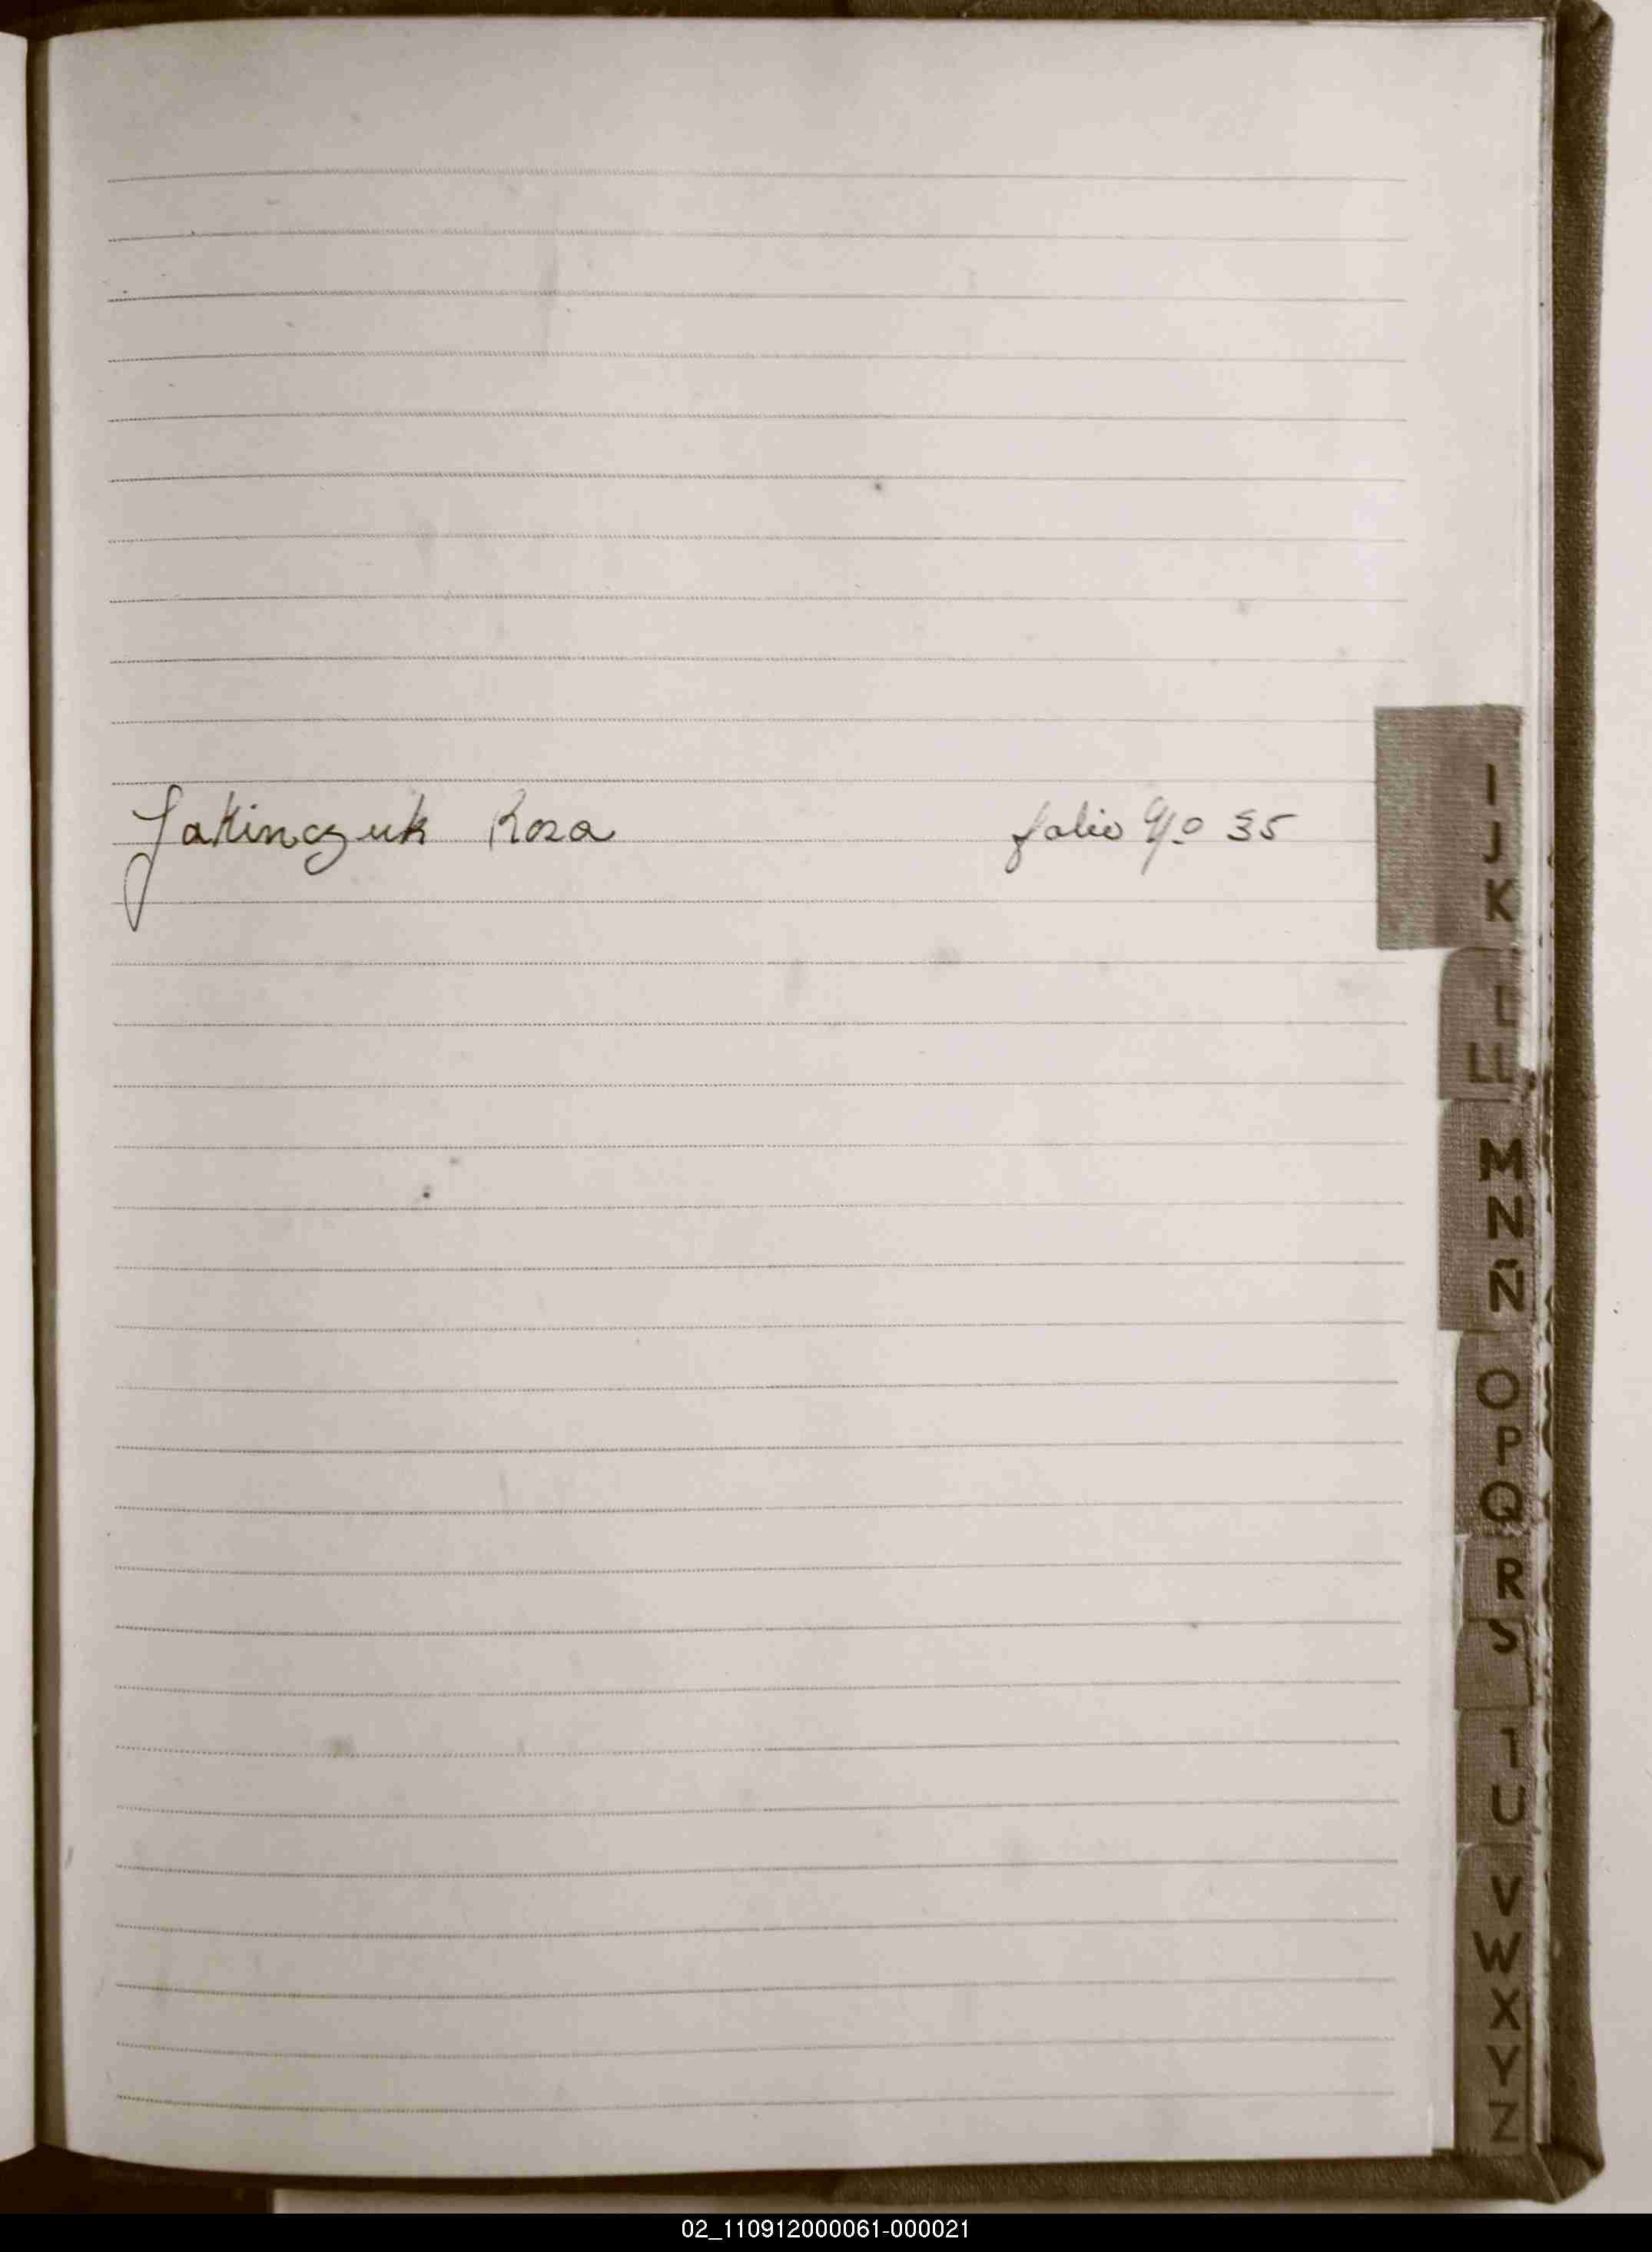 Jakinczuk Rosa folio Nº 35
I
J
K
L
LL
M
N
Ñ
O
P
Q
R
S
T
U
V
W
X
Y
Z
02_110912000061-000021